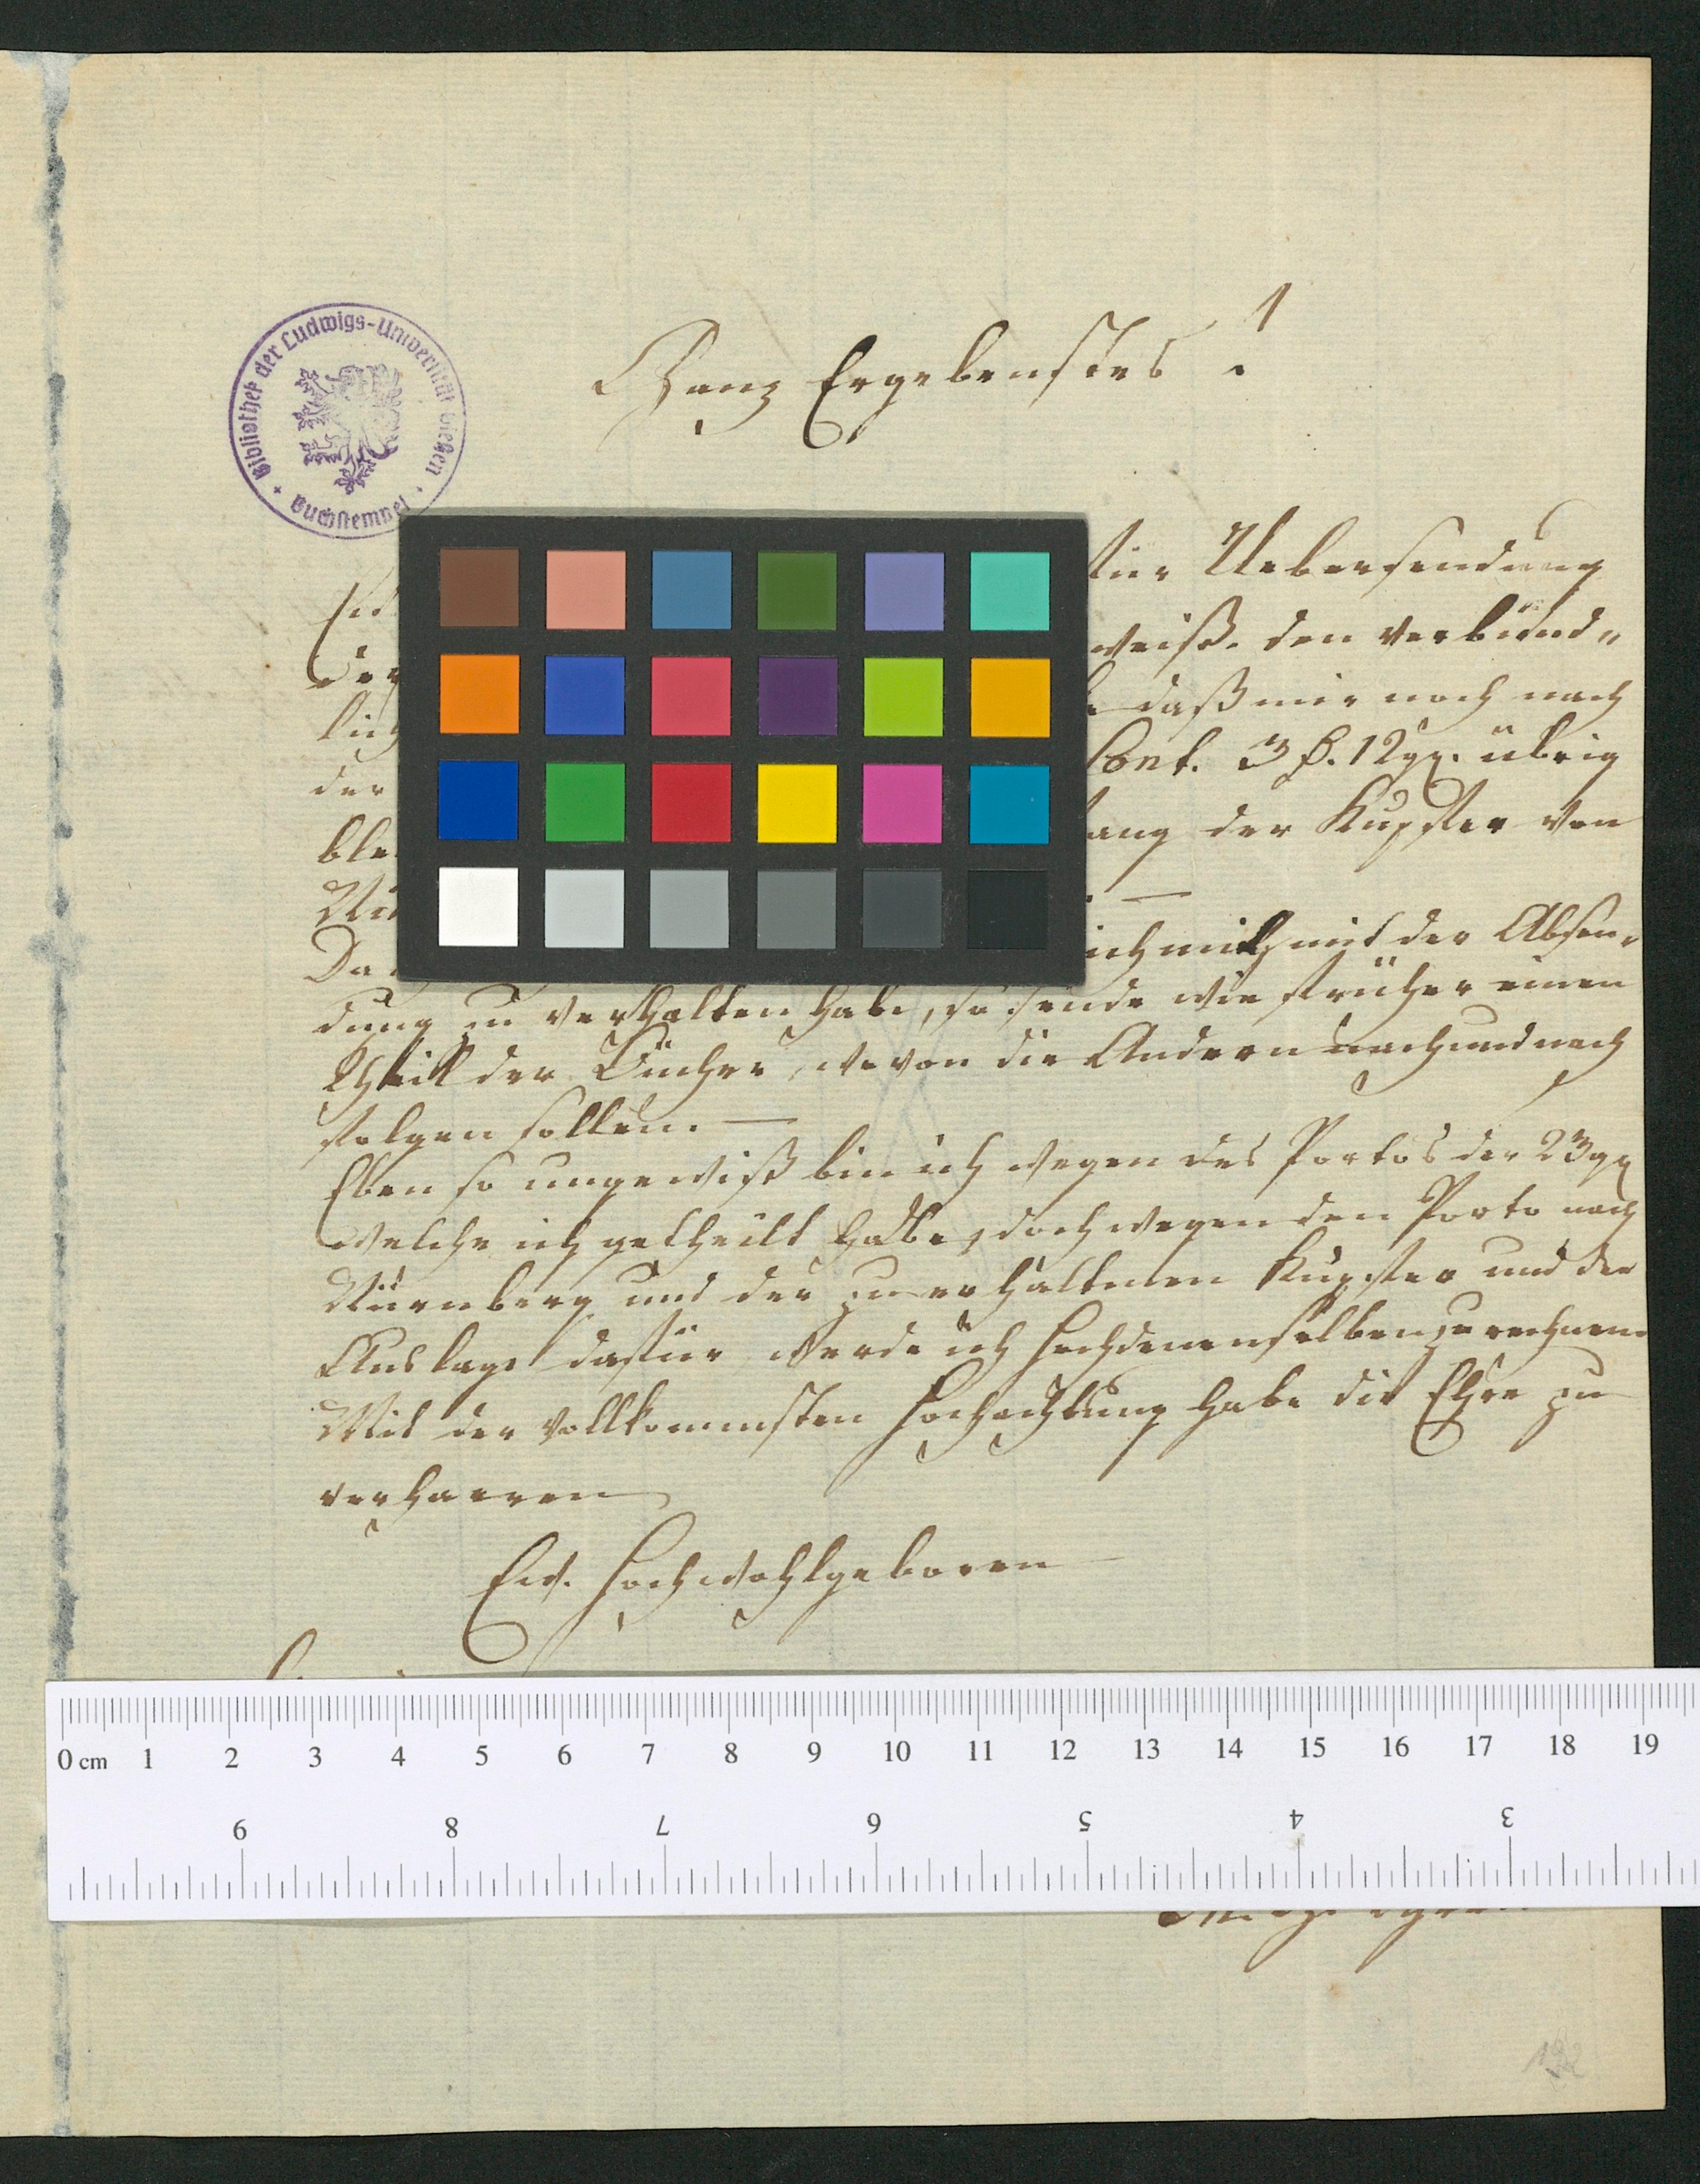 Bibliothek der Ludwigs-Universität Gießen
Buchstempel
Ganz Ergebenstes !
für Uebersendung
weiß. den verbind-
daß mir noch nach
der Cont. 3 f. 12 gr. übrig
ble ang der Kupfter von
Nü . —
Da ich mich mit der Absen-
dung zu verhalten habe, so sende wie früher einen
Theill der Bücher, wovon die Andern nach und nach
folgen sollen. —
Eben so ungewiß bin ich wegen des Porto's der 23 gr
welche ich getheilt habe, doch wegen den Porto nach
Nürnberg und der zu erhaltenen Kupfter und der
Auslage dafür werde ich Hochdenenselben zu rechnen.
Mit der vollkommsten Hochachtung habe die Ehre zu
verharren
Ew. Hochwohlgeboren
0 cm 1 2 3 4 5 6 7 8 9 10 11 12 13 14 15 16 17 18 19
9 8 7 6 5 4 3